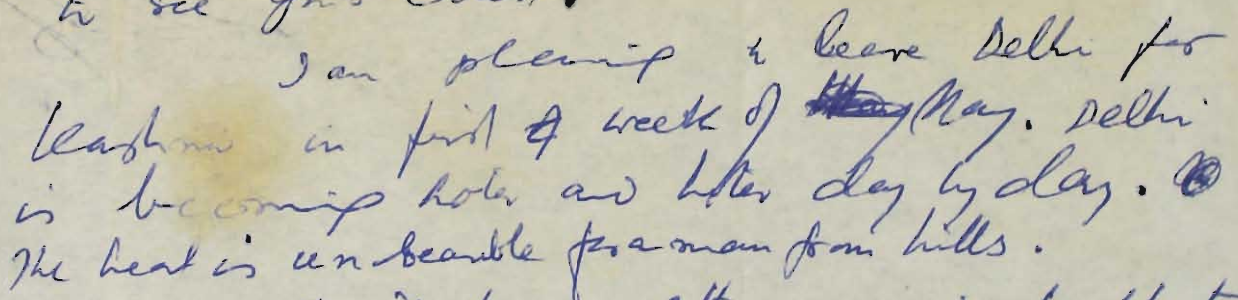 to see you soon.
I am planing to leave Delhi for
Kashmir in first week of May. Delhi
is becoming hoter and hoter day by day.
The heat is unbearable for a man from hills.